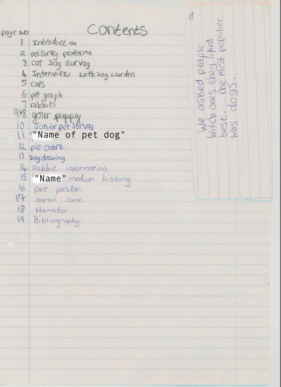 Contents
page no
1 Introduction
2 pet survey problems
3 cat dog survey
4 Interview with dog warden
5 cats
6 pet graph
7 rabbits
8 your puppy
10 Junior pet survey
11 "Name of pet dog"
12 pie chart
13 dog drawing
14 Rabbit information
15 "Name" medical history
16 pet poster
17
18 Hamster
19 Bibliography
We asked people
which pets they had
the most popular
was dogs.